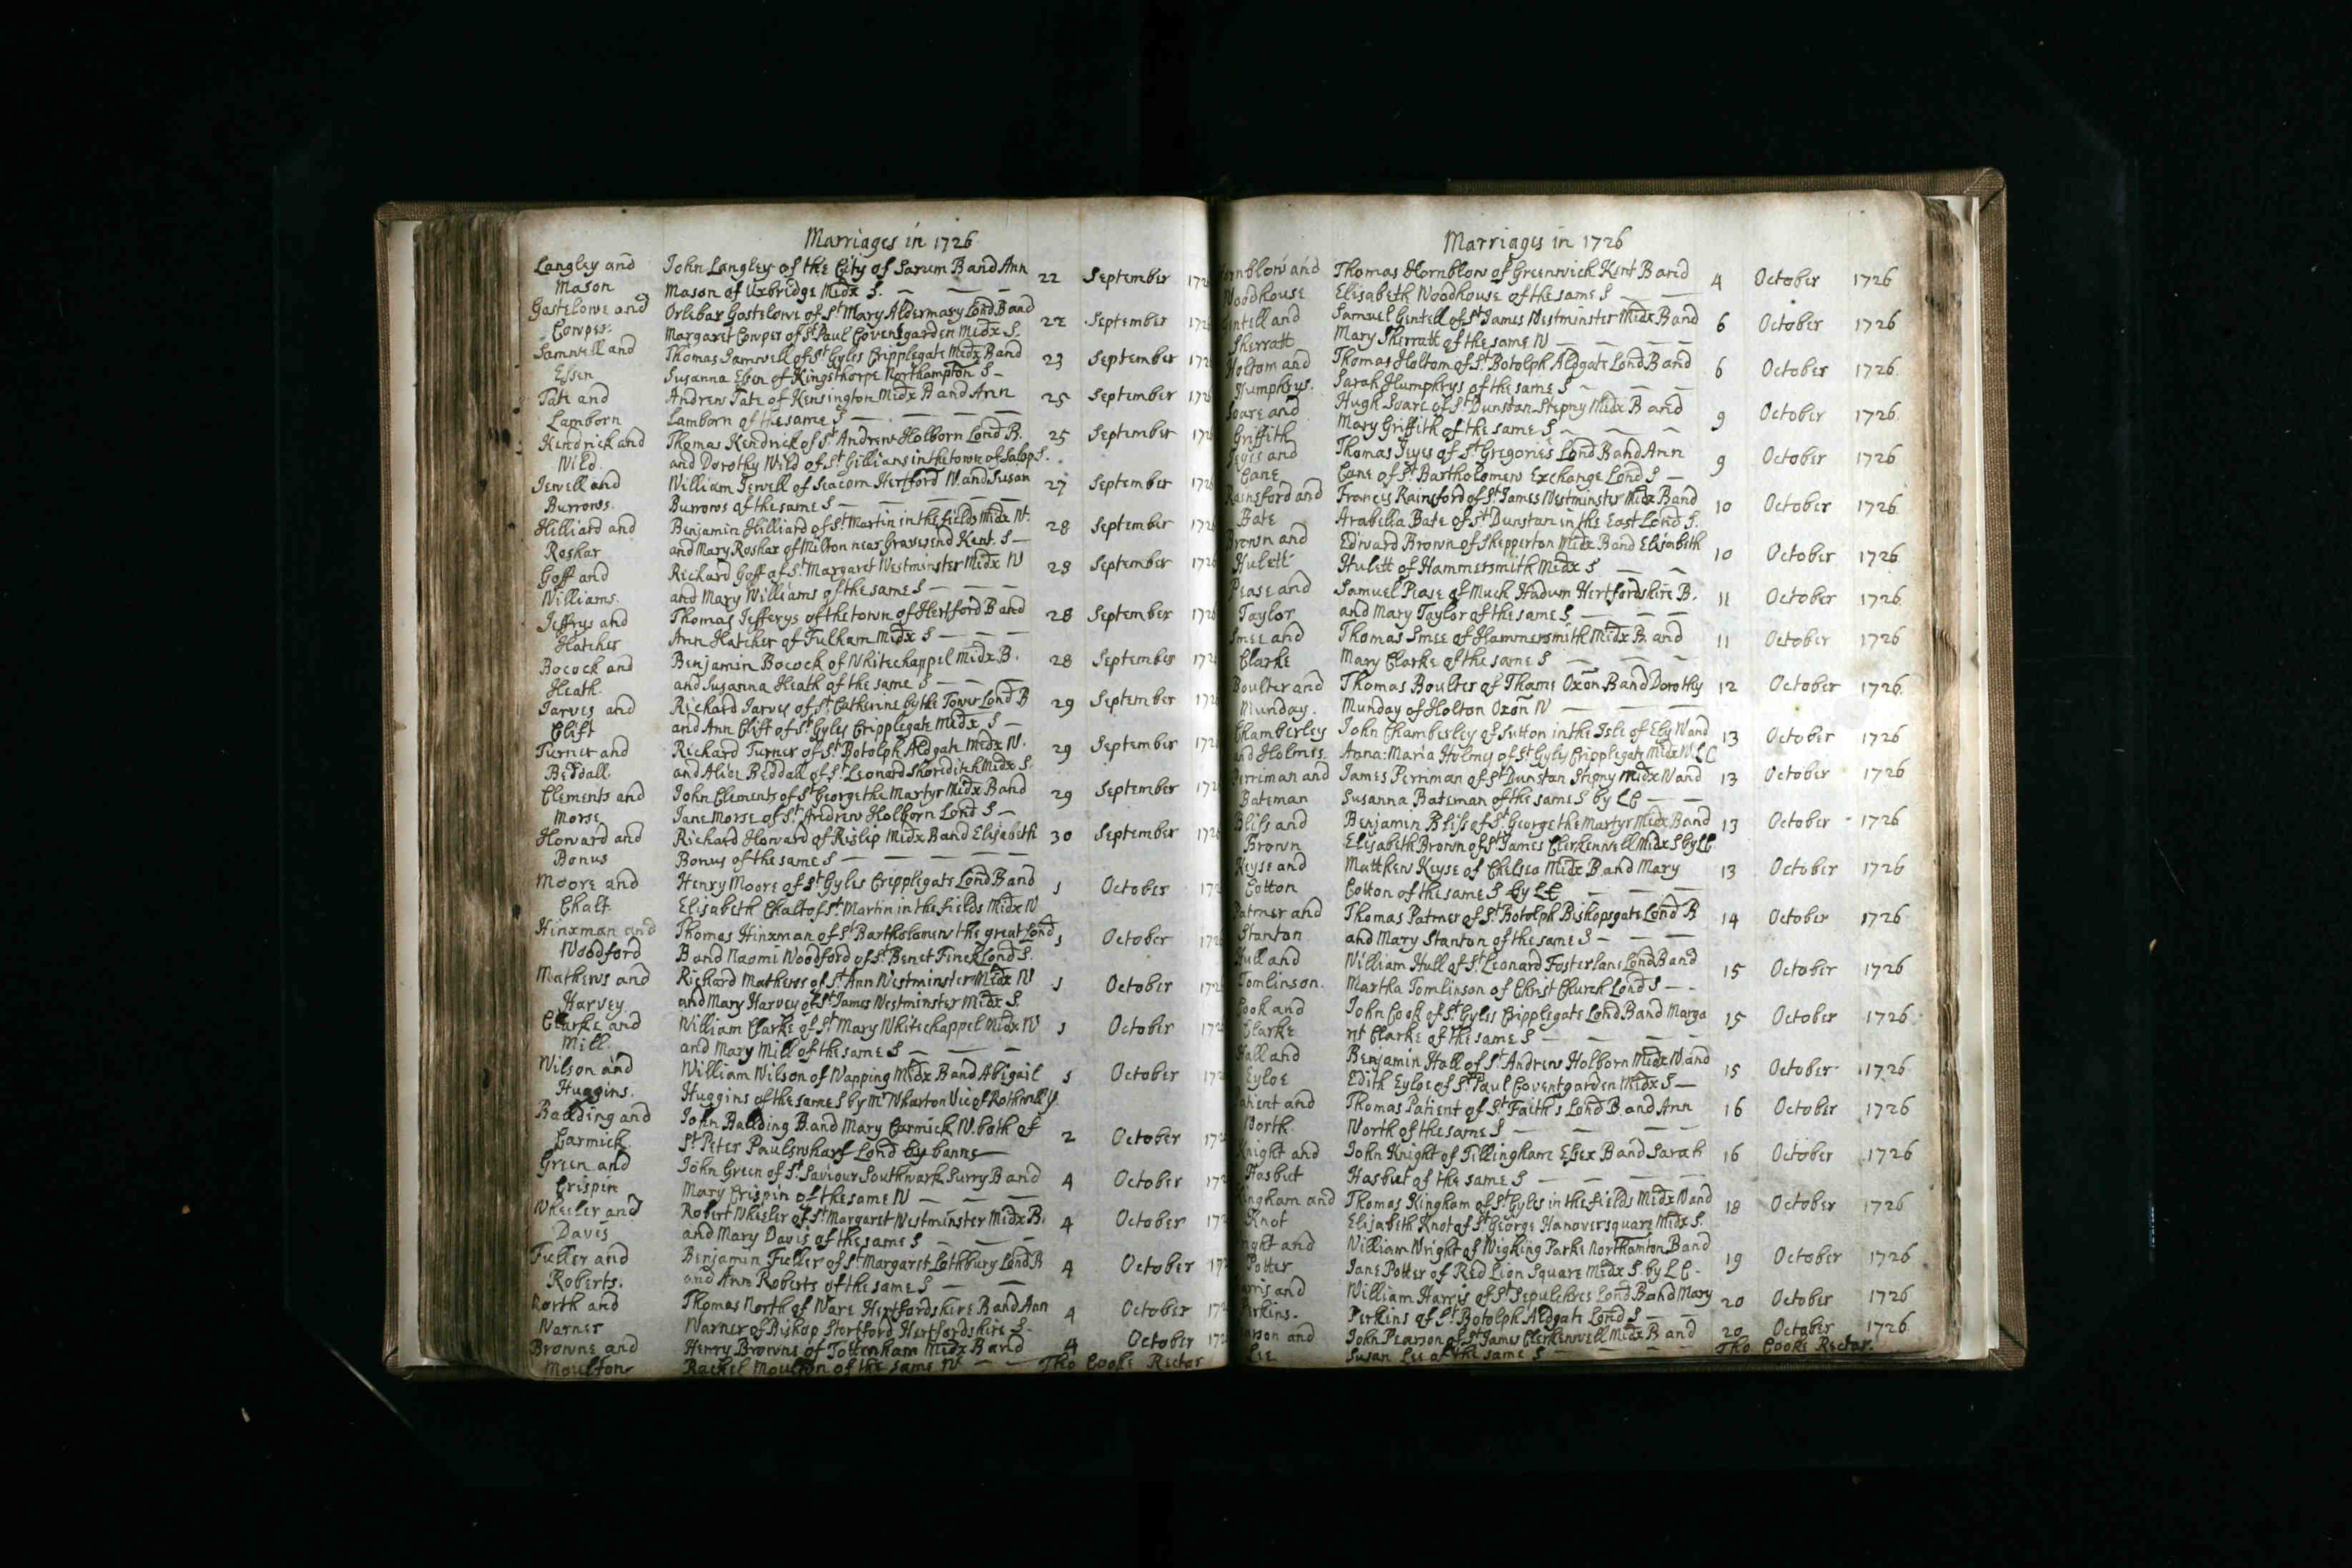 Marriages in 1726
Langley and John Langley of the City of Sarum B and Ann 22 September 172
Mason Mason of Uxbridge Midx S.
Gastelowe and Orlebar Gastelowe of St Mary Aldermary Lond B and 22 September 172
Cowper Margaret Cowper of St Paul Coventgarden Midx S.
Samwell and Thomas Samwell of St Gyles Cripplegate Midx B and 23 September 172
Essen Susanna Essen of Kingsthorpe Northampton S
Tate and Andrew Tate of Kensington Midx B and Ann 25 September 172
Lamborn Lamborn of the same S
Kendrick and Thomas Kendrick of St Andrew Holborn Lond B. 25 September 172
Wild. and Dorothy Wild of St Gillians in the town of Salop S.
Jewell and William Jewell of Seacorn Hertford W. and Susan 27 September 172
Burrows. Burrows of the same S
Hilliard and Benjamin Hilliard of St Martin in the fields Midx W. 28 September 172
Roshar and Mary Roshar of Milton near Gravesend Kent. S
Goff and Richard Goff of St Margaret Westminster Midx W 28 September 172
Williams. and Mary Williams of the same S
Jeffrys and Thomas Jefferys of the town of Hertford B and 28 September 172
Hatcher Ann Hatcher of Fulham Midx S
Bocock and Benjamin Bocock of Whitechappel Midx B. 28 September 172
Heath. and Susanna Heath of the same S
Jarves and Richard Jarves of St Catherine by the Tower Lond B 29 September 172
Clift and Ann Clift of St Gyles Cripplegate Midx S
Turner and Richard Turner of St Botolph Aldgate Midx W. 29 September 172
Beddall. and Alice Beddall of St Leonard Shoreditch Midx S.
Clements and John Clements of St George the Martyr Midx B and 29 September 172
Morse Jane Morse of St Andrew Holborn Lond S
Howard and Richard Howard of Rislip Midx B and Elisabeth 30 September 172
Bonus Bonus of the same S
Moore and Henry Moore of St Gyles Cripplegate Lond B and 1 October 172
Chalt. Elisabeth Chalt of St Martin in the fields Midx W
Hinxman and Thomas Hinxman of St Bartholomew the great Lond 1 October 172
Woodford B and Naomi Woodford of St Benet Finck Lond S.
Mathews and Richard Mathews of St Ann Westminster Midx W 1 October 172
Harvey and Mary Harvey of St James Westminster Midx S.
Clarke and William Clarke of St Mary Whitechappel Midx W 1 October 172
Mill. and Mary Mill of the same S
Wilson and William Wilson of Wapping Midx B and Abigail 1 October 172
Huggins. Huggins of the same S by Mr Wharton Vic of Rothwell
Ballding and John Ballding B. and Mary Carmick W. both of 2 October 172
Carmick. St Peter Paulswharf Lond by banns
Green and John Green of St Saviour Southwark Surry B and 4 October 172
Crispin Mary Crispin of the same W
Wheeler and Robert Wheeler of St Margaret Westminster Midx B. 4 October 172
Davis and Mary Davis of the same S
Fuller and Benjamin Fuller of St Margaret Lothbury Lond B 4 October 172
Roberts. and Ann Roberts of the same S
North and Thomas North of Ware Hertfordshire B and Ann 4 October 172
Warner Warner of Bishop Stortford Hertfordshire S.
Browne and Henry Browne of Tottenham Midx B and 4 October 172
Moulton Rachel Moulton of the same W Tho Cooke Rector
Marriages in 1726
Hornblow and Thomas Hornblow of Greenwich Kent B and 4 October 1726
Woodhouse Elisabeth Woodhouse of the same S
Gentell and Samuel Gentell of St James Westminster Midx B and 6 October 1726
Sherratt Mary Sherratt of the same W
Holtom and Thomas Holtom of St Botolph Aldgate Lond B and 6 October 1726
Humphrys. Sarah Humphrys of the same S
Soare and Hugh Soare of St Dunstan Stepny Midx B and 9 October 1726
Griffith Mary Griffith of the same S
Jeyes and Thomas Jeyes of St Gregories Lond B and Ann 9 October 1726
Cane Cane of St Bartholomew Exchange Lond S
Rainsford and Francis Rainsford of St James Westminster Midx B and 10 October 1726
Bate Arabella Bate of St Dunstan in the East Lond S.
Brown and Edward Brown of Shepperton Midx B and Elisabeth 10 October 1726
Hulett Hulett of Hammersmith Midx S
Pease and Samuel Pease of Much Hadum Hertfordshire B. 11 October 1726
Taylor and Mary Taylor of the same S
Smee and Thomas Smee of Hammersmith Midx B and 11 October 1726
Clarke Mary Clarke of the same S
Boulter and Thomas Boulter of Thame Oxon B and Dorothy 12 October 1726
Munday. Munday of Holton Oxon W
Chamberley John Chamberley of Sutton in the Isle of Ely W and 13 October 1726
and Holmes. Anna-Maria Holmes of St Gyles Cripplegate Midx W. LC
Perriman and James Perriman of St Dunstan Stepny Midx W and 13 October 1726
Bateman Susanna Bateman of the same S by LC
Bliss and Benjamin Bliss of St George the Martyr Midx B and 13 October 1726
Brown Elisabeth Brown of St James Clerkenwell Midx S by LC
Keyse and Matthew Keyse of Chelsea Midx B and Mary 13 October 1726
Cotton Cotton of the same S by LC
Patmer and Thomas Patmer of St Botolph Bishopsgate Lond B 14 October 1726
Stanton and Mary Stanton of the same S
Hull and William Hull of St Leonard Fosterlane Lond B and 15 October 1726
Tomlinson. Martha Tomlinson of Christ Church Lond S
Cook and John Cook of St Gyles Cripplegate Lond B and Marga 15 October 1726
Clarke ret Clarke of the same S
Hall and Benjamin Hall of St Andrew Holborn Midx W and 15 October 1726
Eyloe Edith Eyloe of St Paul Coventgarden Midx S
Patient and Thomas Patient of St Faith's Lond B and Ann 16 October 1726
North North of the same S
Knight and John Knight of Tillingham Essex B and Sarah 16 October 1726
Hasbut Hasbut of the same S
Kingham and Thomas Kingham of St Gyles in the fields Midx W and 18 October 1726
Knot Elisabeth Knot of St George Hanoversquare Midx S.
Wright and William Wright of Wighing Parke Northamton B and 19 October 1726
Potter Jane Potter of Red Lion Square Midx S. by LC
Harris and William Harris of St Sepulchres Lond B and Mary 20 October 1726
Perkins. Perkins of St Botolph Aldgate Lond S
Pearson and John Pearson of St James Clerkenwell Midx B and 20 October 1726
Lee Susan Lee of the same S Tho Cooke Rector.